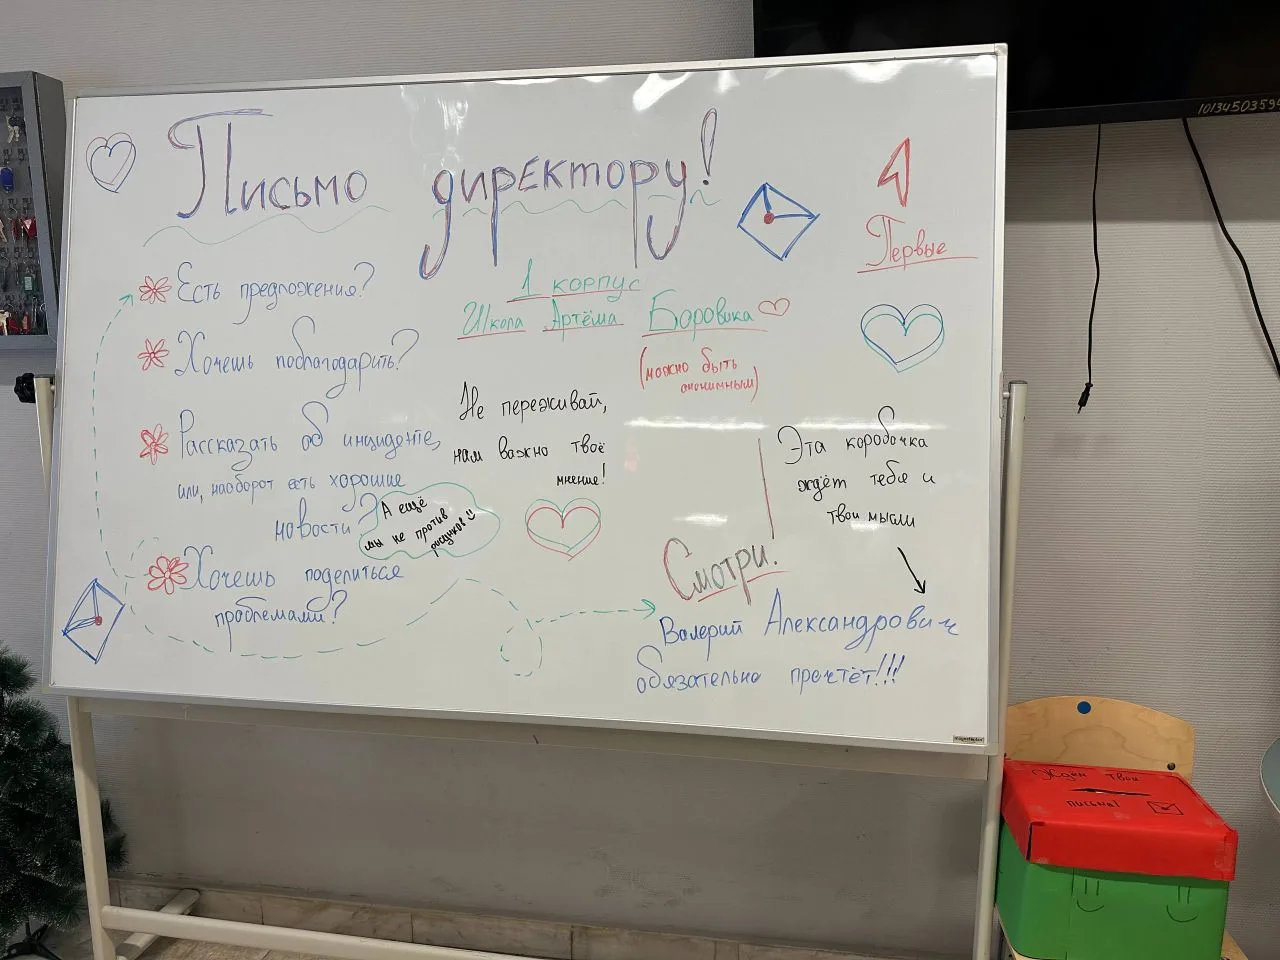 Письмо директору!
Первые
1 корпус
Школа Артёма Боровика
(можно быть
анонимным)
Есть предложения?
Хочешь поблагодарить?
Рассказать об инциденте,
или, наоборот есть хорошие
новости?
Хочешь поделиться
проблемами?
А ещё
мы не против
рисунков
Не переживай,
нам важно твоё
мнение!
Эта коробочка
ждёт тебя и
твои мысли
Смотри.
Валерий Александрович
обязательно прочтёт!!!
Ждём твои
письма!